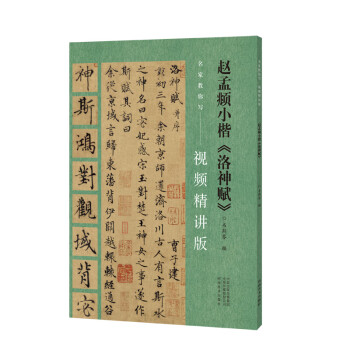 赵孟頫小楷《洛神赋》
名家教你写——
视频精讲版
洛神賦 并序
曹子建
黄初三年余朝京師還濟洛川古人有言斯水
之神名曰宓妃感宋玉對楚王神女之事遂作
斯賦其詞曰
余從京域言歸東藩背伊闕越轘轅經通谷
神斯鴻對觀域背宓